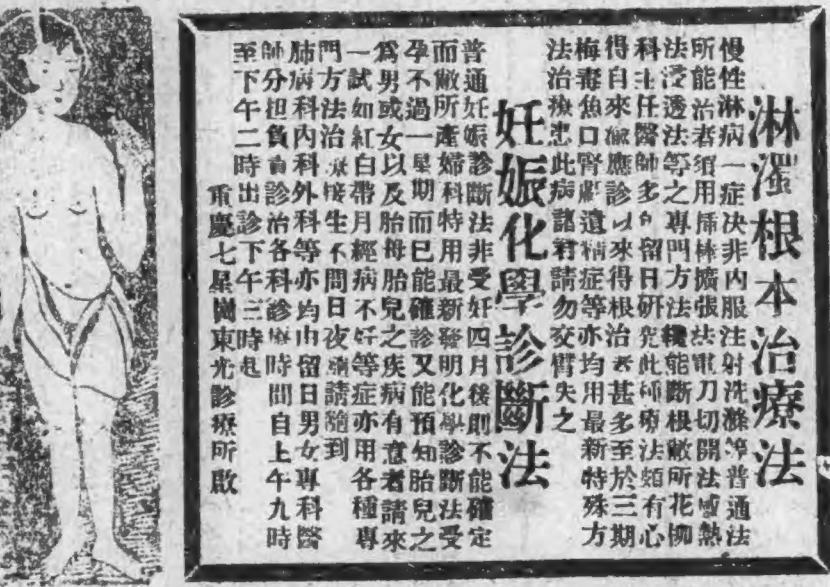 淋濁根本治療法
慢性淋病一症决非內服注射洗滌等普通法
所能治者須用擴張法電刀切開法熱
法浸透法等之專門方法纔能斷根敝所花柳
科主任醫師多年留日研究此種療法頗有心
得自來應診以來得根治者甚多至於三期
梅毒魚口腎遺精症等亦均用最新特殊方
法治療患此病諸君請勿交臂失之
妊娠化學診斷法
普通妊娠診斷法非受妊四月後則不能確定
而敝所產婦科特用最新發明化學診斷法受
孕不過一星期而已能確診又能預知胎兒之
爲男或女以及胎母胎兒之疾病有意者請來
一試如紅白帶月經病不好等症亦用各種專
門方法治療接生不問日夜請隨到
肺病科內科外科等亦均由留日男女專科醫
師分担負責診治各科診療時間自上午九時
至下午二時出診下午三時起
重慶七星崗東光診療所啟